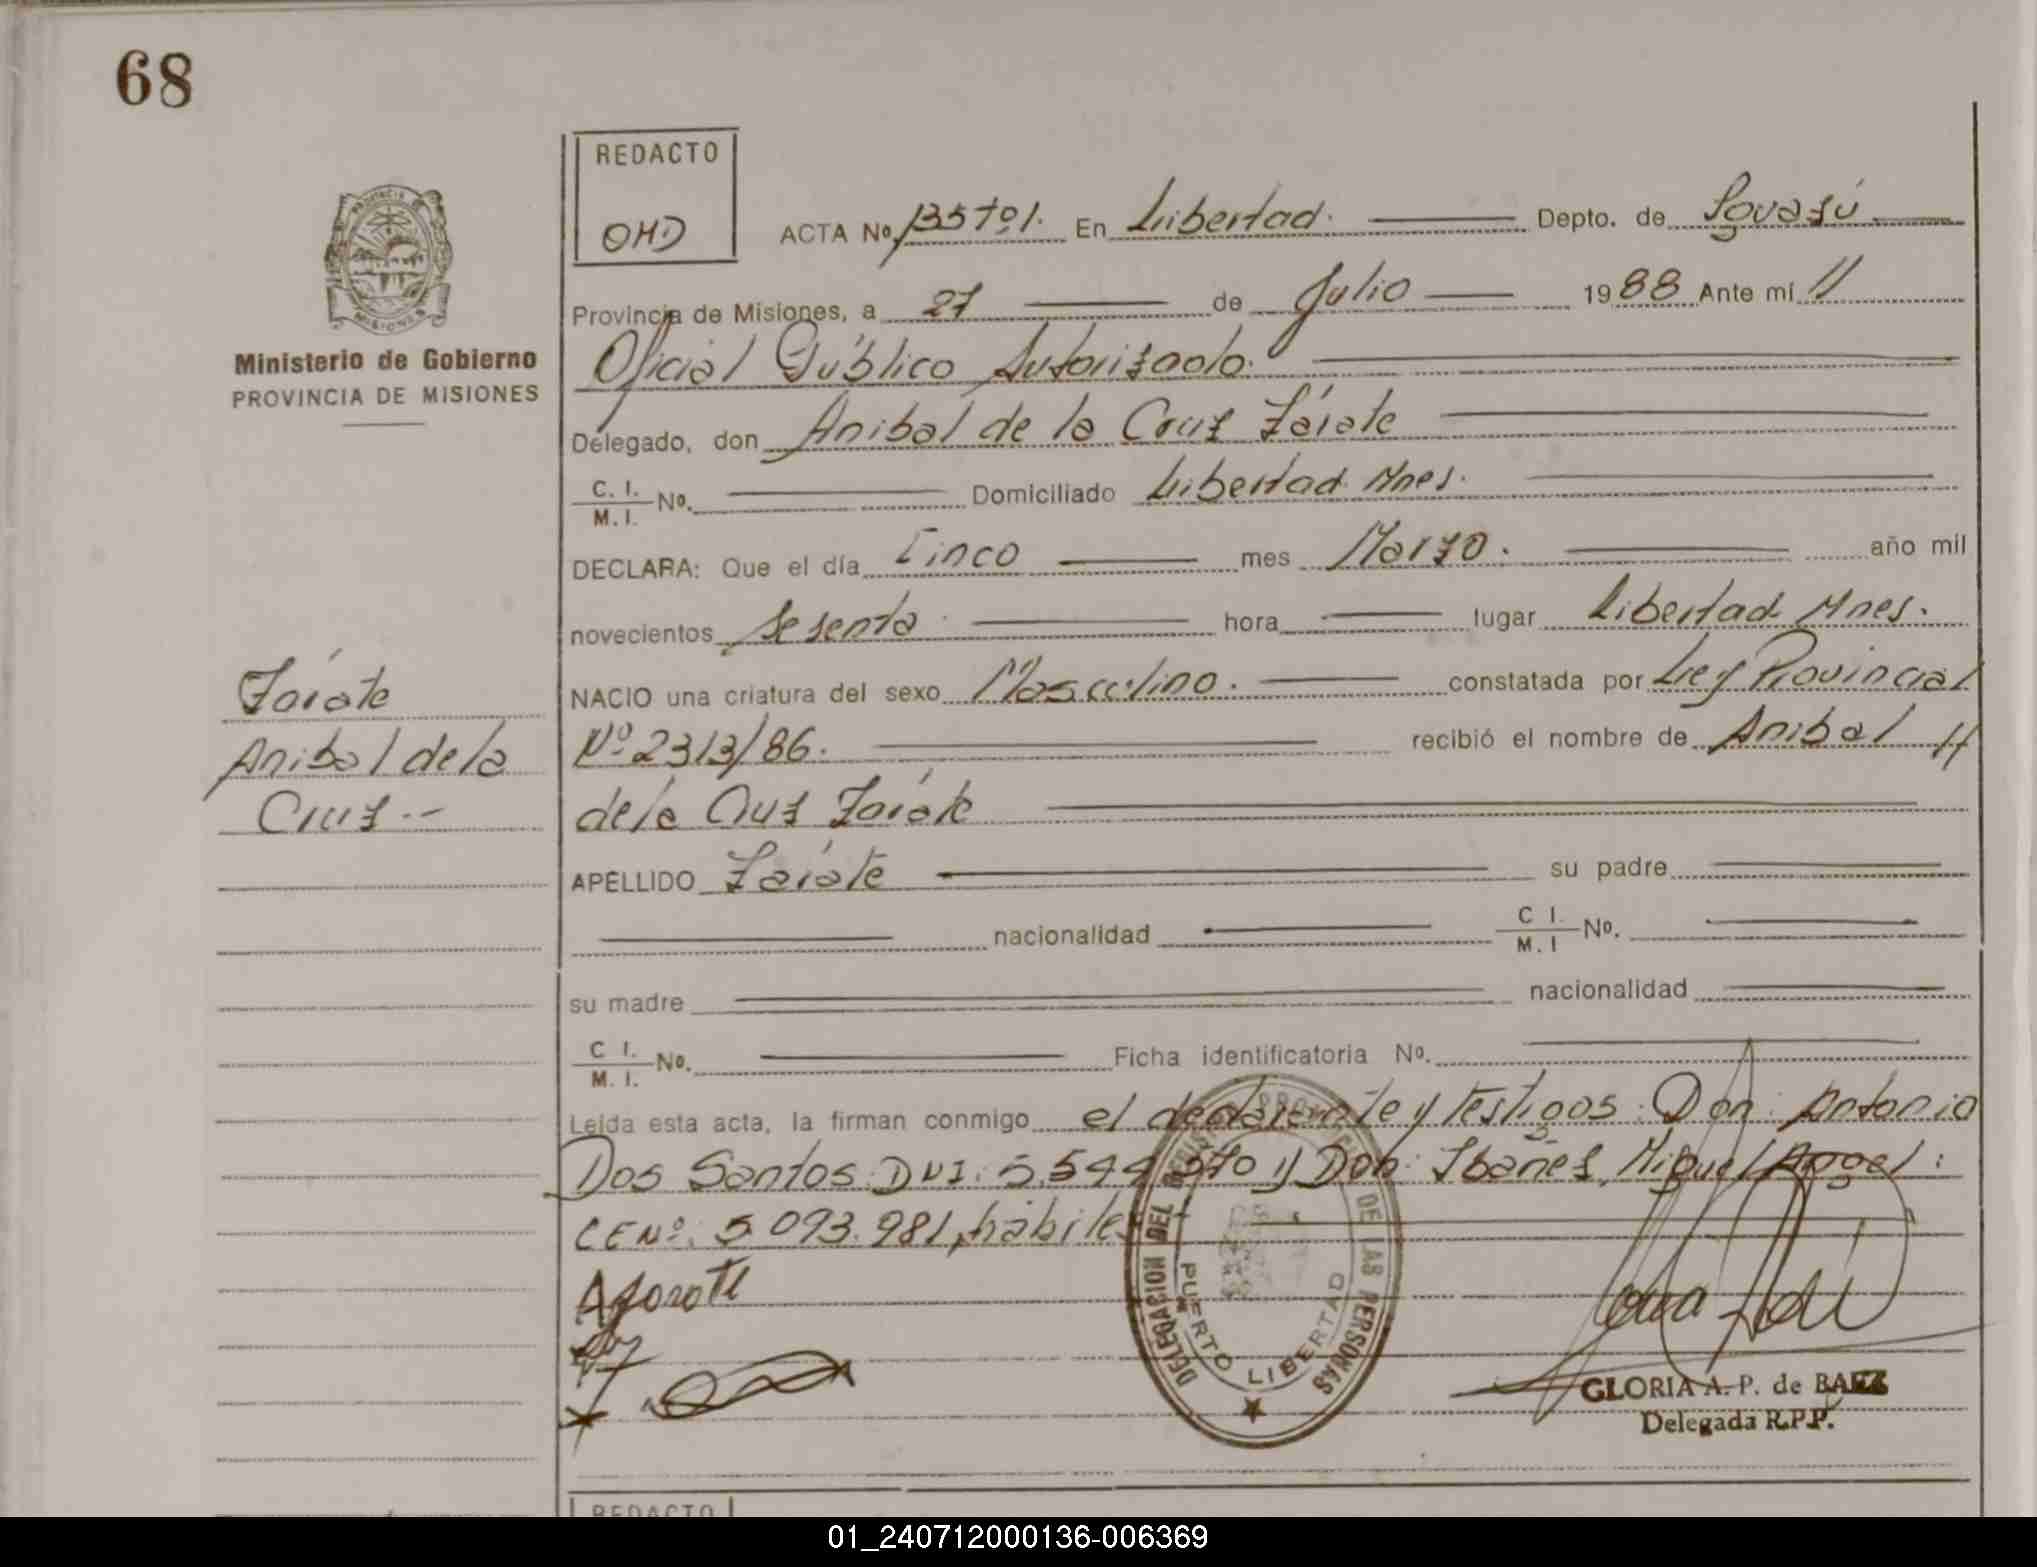 68
REDACTO
OHD
ACTA No. 135 Tº 1. En Libertad. Depto. de Iguazú
Provincia de Misiones, a 27 de Julio 1988 Ante mí //
Oficial Público Autorizado.
Delegado, don Anibal de la Cruz Zárate
C. I. / M. I. No. Domiciliado Libertad Mnes.
DECLARA: Que el día Cinco mes Marzo. año mil
novecientos Sesenta hora lugar Libertad Mnes.
NACIO una criatura del sexo Masculino. constatada por Ley Provincial
Nº 2313/86. recibió el nombre de Anibal //
de la Cruz Zárate
APELLIDO Zárate su padre
nacionalidad C I. / M. I No.
su madre nacionalidad
C I. / M. I. No. Ficha identificatoria No.
Leída esta acta, la firman conmigo el declarante y testigos: Don: Antonio
Dos Santos: DNI: 5.544 370 y Don: Ibañes, Miguel Angel:
CE Nº: 5 093.981, hábiles
AZarate
PROVINCIA DE
MISIONES
Ministerio de Gobierno
PROVINCIA DE MISIONES
Zárate
Anibal de la
Cruz.-
DELEGACION DEL REGISTRO PROVINCIAL DE LAS PERSONAS
PUERTO LIBERTAD
GLORIA A. P. de BAEZ
Delegada R.P.P.
REDACTO
01_240712000136-006369